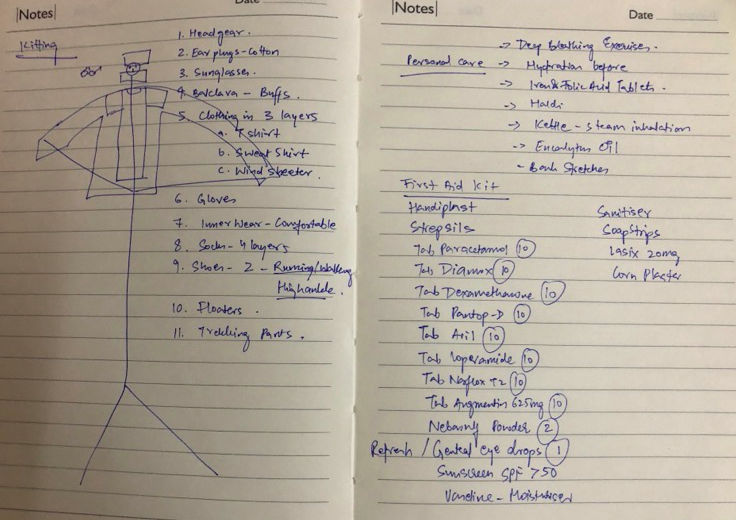 Notes
Date
Kitting
1. Headgear.
2. Ear plugs - Cotton
3. Sunglasses.
4. Balclara - Buffs.
5. Clothing in 3 layers
a. T shirt
b. Sweat Shirt
c. Windsheeter.
6. Gloves
7. Inner Wear - Comfortable
8. Socks - 4 layers
9. Shoes - 2 - Running/Walking
High ankle.
10. Floaters.
11. Trekking Pants.
Notes
Date
Personal care
→ Deep Breathing Exercises.
→ Hydration before
→ Iron & Folic Acid Tablets.
→ Haldi
→ Kettle - steam inhalation
→ Eucalyptus Oil
- Stretches
First Aid Kit
Handiplast
Strepsils
Tab Paracetamol 10
Tab Diamox 10
Tab Dexamethasone 10
Tab Pantop-D 10
Tab Avil 10
Tab loperamide 10
Tab Norflox TZ 10
Tab Augmentin 625mg 10
Powder 2
Refresh / Genteal eye drops 1
Sunscreen SPF >50
Vaseline - Moisturiser
Sanitiser
Soap Strips
Lasix 20mg
Corn Plaster